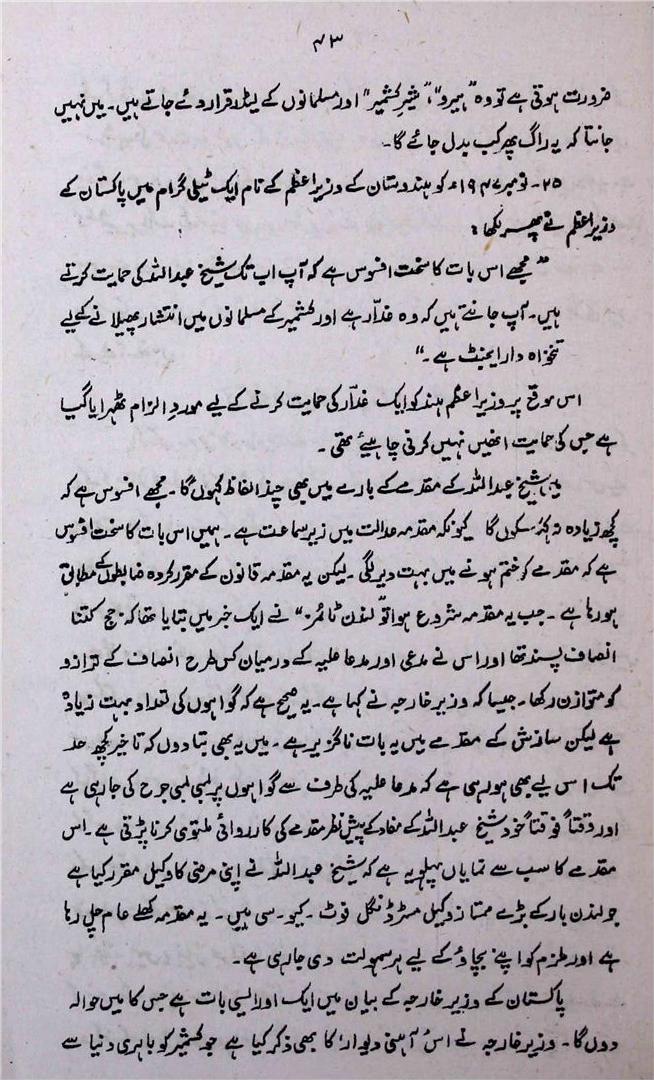 ۴۳
ضرورت ہوتی ہے تو وہ "ہیرو"، "شیرِ کشمیر" اور مسلمانوں کے لیڈر قرار دئے جاتے ہیں۔ میں نہیں
جانتا کہ یہ راگ پھر کب بدل جائے گا۔
۲۵۔ نومبر ۱۹۴۷ء کو ہندوستان کے وزیراعظم کے نام ایک ٹیلی گرام میں پاکستان کے
وزیراعظم نے پھر لکھا :
"مجھے اس بات کا سخت افسوس ہے کہ آپ اب تک شیخ عبداللہ کی حمایت کرتے
ہیں۔ آپ جانتے ہیں کہ وہ غدّار ہے اور کشمیر کے مسلمانوں میں انتشار پھیلانے کے لیے
تنخواہ دار ایجنٹ ہے۔"
اس موقع پر وزیراعظم ہند کو ایک غدّار کی حمایت کرنے کے لیے موردِ الزام ٹھہرایا گیا
ہے جس کی حمایت انھیں نہیں کرنی چاہیئے تھی۔
میں شیخ عبداللہ کے مقدمے کے بارے میں بھی چند الفاظ کہوں گا۔ مجھے افسوس ہے کہ
کچھ زیادہ نہ کہہ سکوں گا کیونکہ مقدمہ عدالت میں زیر سماعت ہے۔ ہمیں اس بات کا سخت افسوس
ہے کہ مقدمے کو ختم ہونے میں بہت دیر لگی۔ لیکن یہ مقدمہ قانون کے مقرر کردہ ضابطوں کے مطابق
ہو رہا ہے۔ جب یہ مقدمہ شروع ہوا تو "لندن ٹائمز" نے ایک خبر میں بتایا تھا کہ جج کتنا
انصاف پسند تھا اور اس نے مدعی اور مدعا علیہ کے درمیان کس طرح انصاف کے ترازو
کو متوازن رکھا۔ جیسا کہ وزیر خارجہ نے کہا ہے۔ یہ صحیح ہے کہ گواہوں کی تعداد بہت زیادہ
ہے لیکن سازش کے مقدمے میں یہ بات ناگزیر ہے۔ میں یہ بھی بتا دوں کہ تاخیر کچھ حد
تک اس لیے بھی ہو رہی ہے کہ مدعا علیہ کی طرف سے گواہوں پر لمبی لمبی جرح کی جا رہی ہے
اور وقتاً فوقتاً خود شیخ عبداللہ کے مفاد کے پیش نظر مقدمے کی کارروائی ملتوی کرنا پڑتی ہے۔ اس
مقدمے کا سب سے نمایاں پہلو یہ ہے کہ شیخ عبداللہ نے اپنی مرضی کا وکیل مقرر کیا ہے
جو لندن بار کے بڑے ممتاز وکیل مسٹر ڈنگل فوٹ ۔کیو۔سی ہیں۔ یہ مقدمہ کھلے عام چل رہا
ہے اور ملزم کو اپنے بچاؤ کے لیے ہر سہولت دی جا رہی ہے۔
پاکستان کے وزیر خارجہ کے بیان میں ایک اور ایسی بات ہے جس کا میں حوالہ
دوں گا۔ وزیر خارجہ نے اُس آہنی دیوار کا بھی ذکر کیا ہے جو کشمیر کو باہری دنیا سے